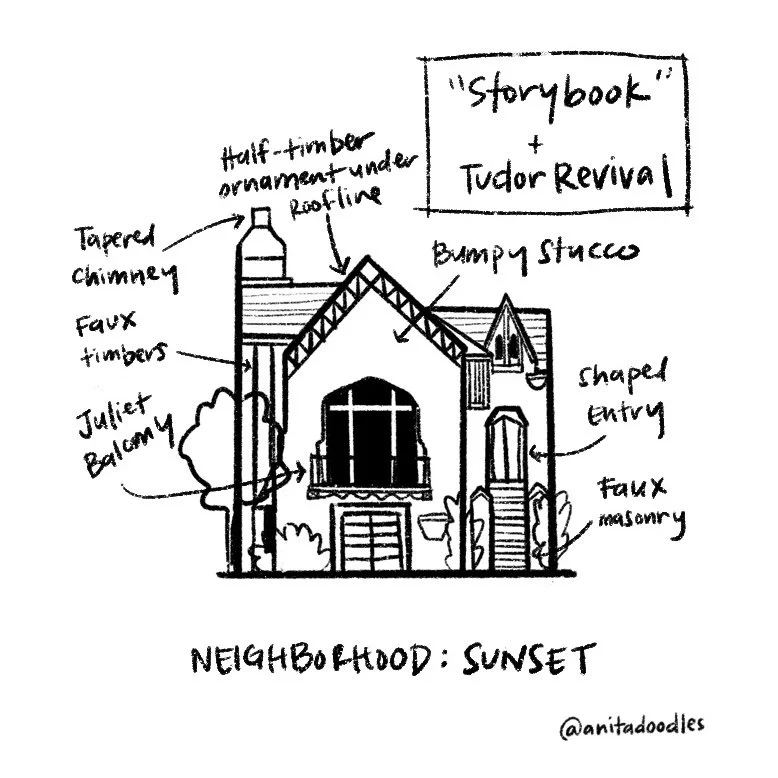 "Storybook"
+
Tudor Revival
Half-timber
ornament under
Roofline
Tapered
Chimney
Bumpy Stucco
Faux
timbers
Shaped
Entry
Juliet
Balcony
Faux
masonry
NEIGHBORHOOD: SUNSET
@anitadoodles